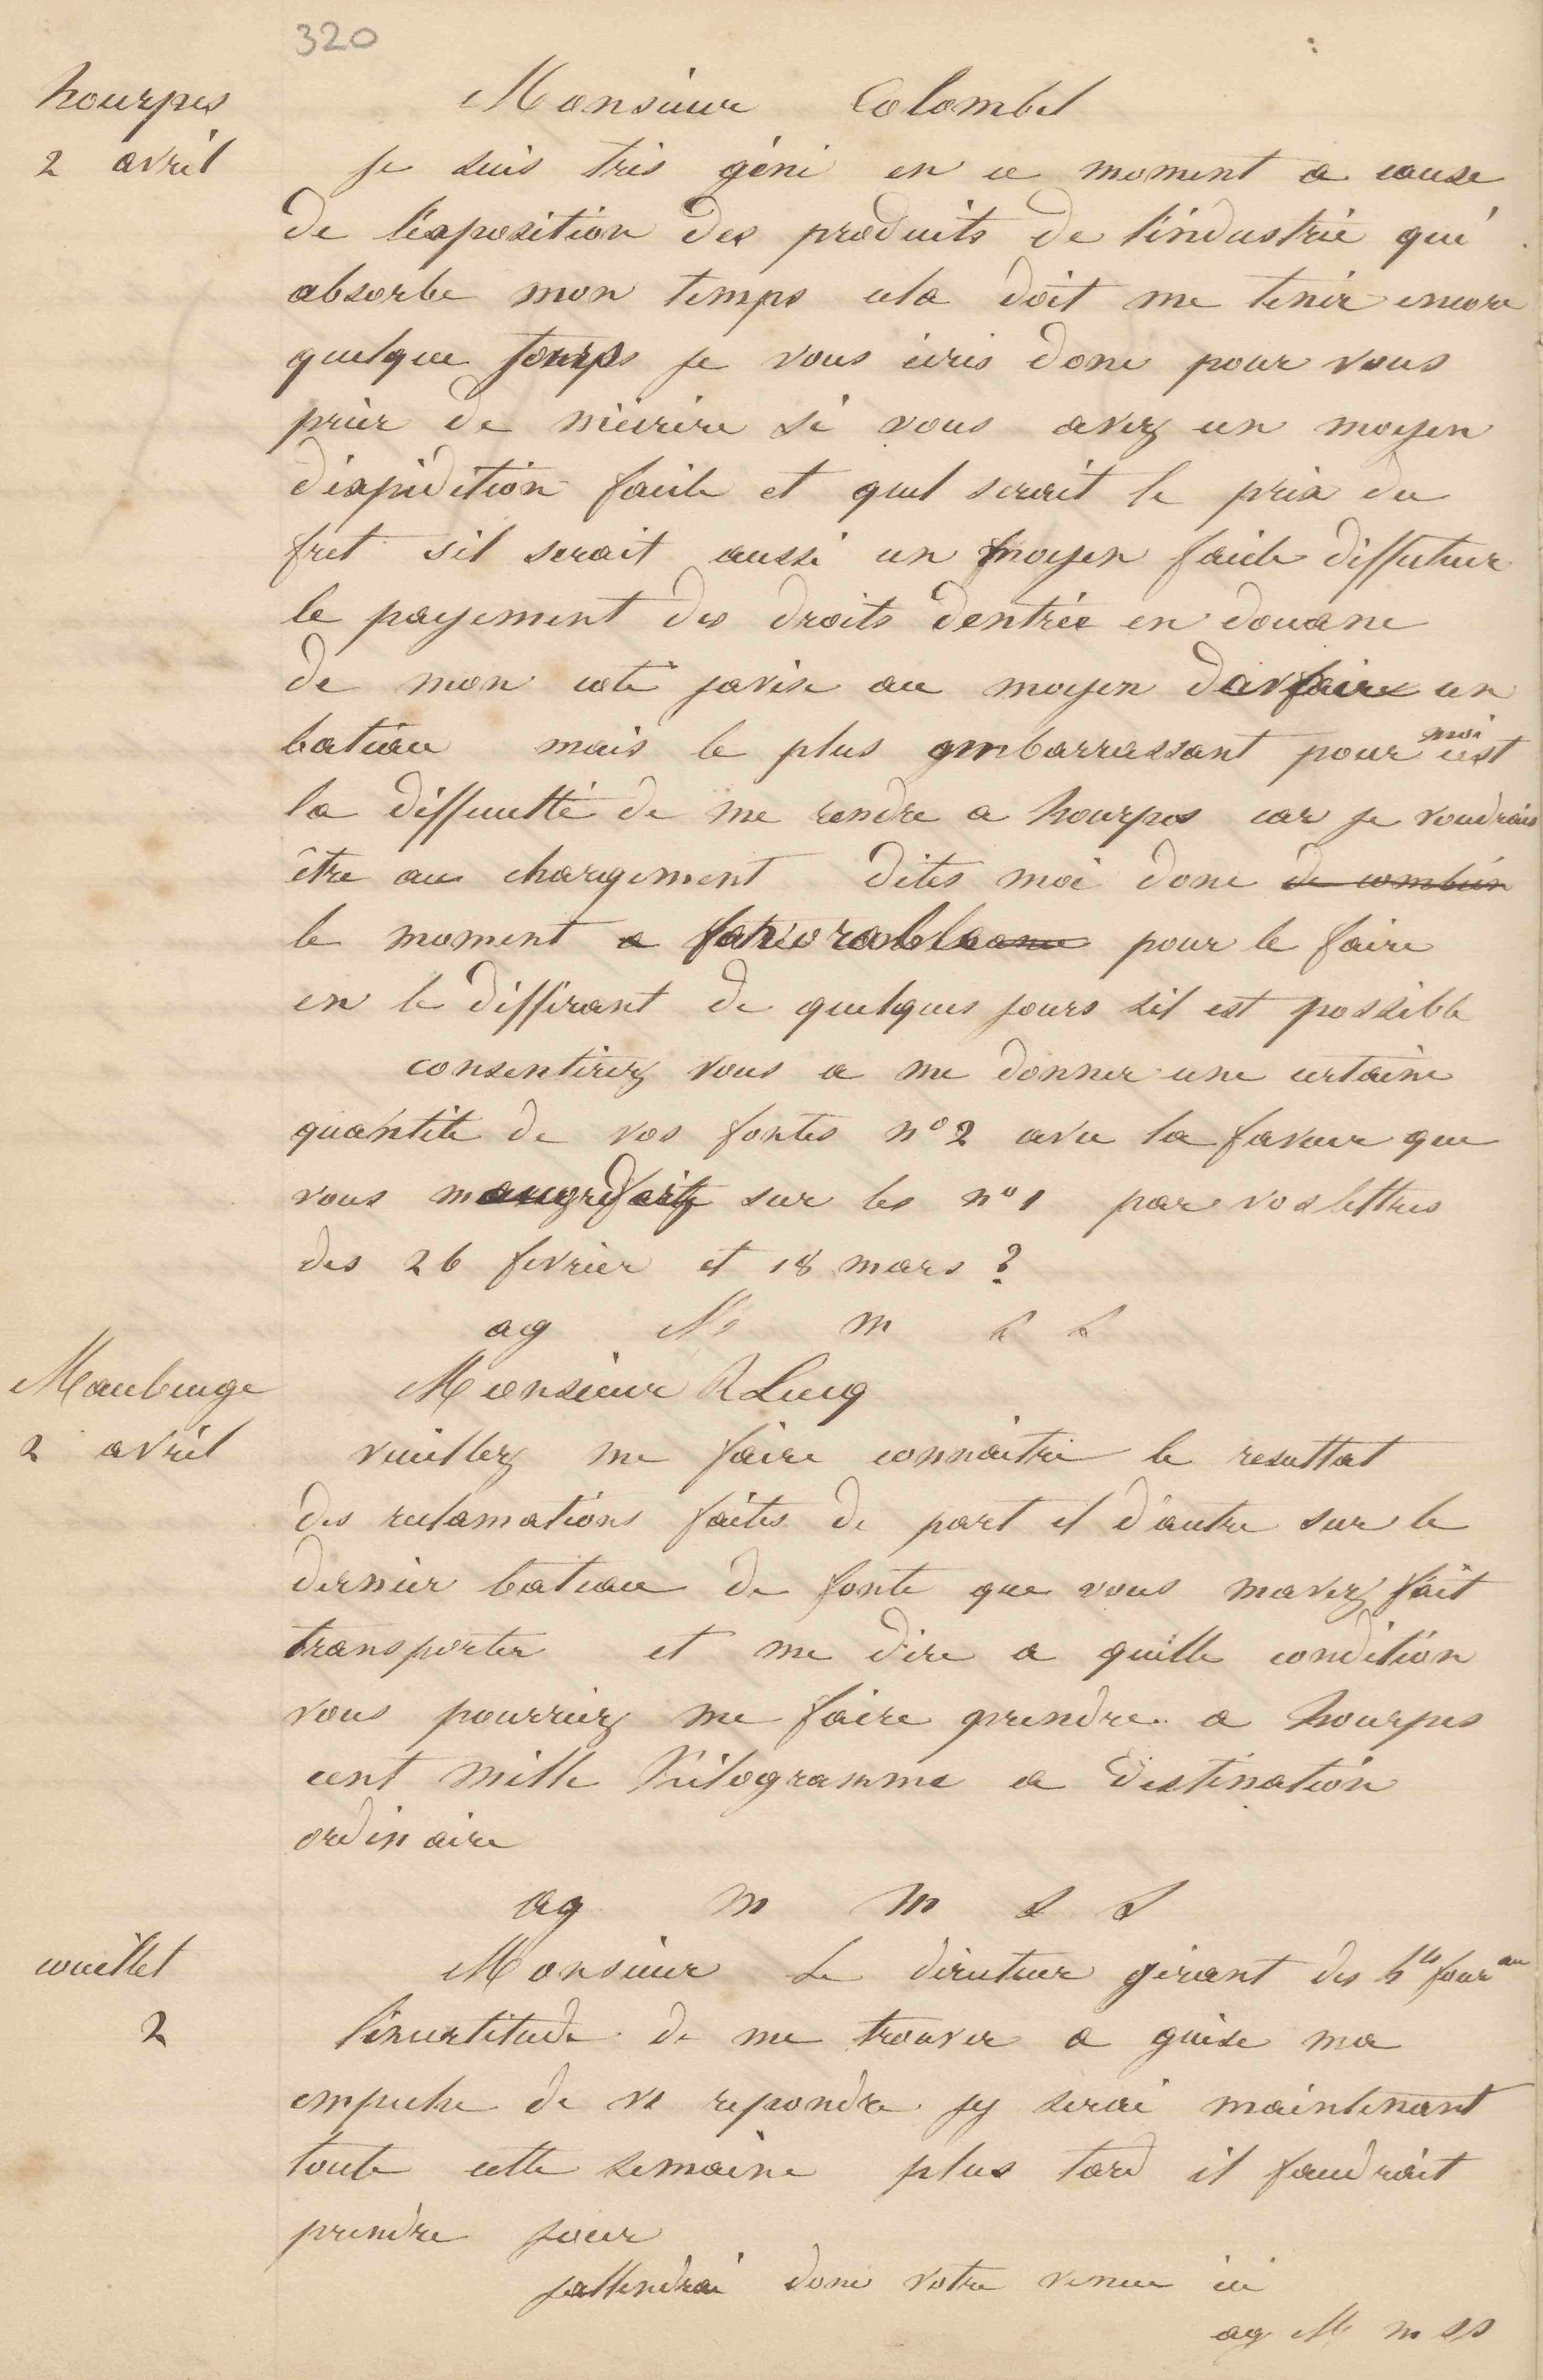 320
hourpes
Monsieur Colombel
2 avril
je suis très géné en ce moment a cause
de l'exposition des produits de l'industrie qui
absorbe mon temps cela doit me tenir encore
quelque temps je vous écris donc pour vous
prier de m'écrire si vous avez un moyen
d'expédition facile et quel serait le prix du
fret sil serait aussi un moyen facile d'effectuer
le payement des droits dentrée en douane
de mon coté javise au moyen davoir un
bateau mais le plus embarrassant pour moi cest
la difficulté de me rendre a hourpes car je voudrais
être au chargement dites moi donc de combien
le moment a favorable pour le faire
en le différant de quelques jours sil est possible
consentirez vous a me donner une certaine
quantite de vos fontes n° 2 avec la faveur que
vous sur les n° 1 par vos lettres
des 26 fevrier et 18 mars ?
ag M m s s
Maubeuge
Monsieur R Lucq
2 avril
veuillez me faire connaitre le resultat
des reclamations faites de part et d'autre sur le
dernier bateau de fonte que vous mavez fait
transporter et me dire a quelle condition
vous pourriez me faire prendre a hourpes
cent mille Kilogramme a destination
ordinaire
ag m m s s
couillet
Monsieur Le directeur gérant des hts fouraux
2
l'incertitude de me trouver a guise ma
empeche de vs repondre jy serai maintenant
toute cette semaine plus tard il faudrait
prendre jour
jattendrai donc votre venue ici
ag M m s s